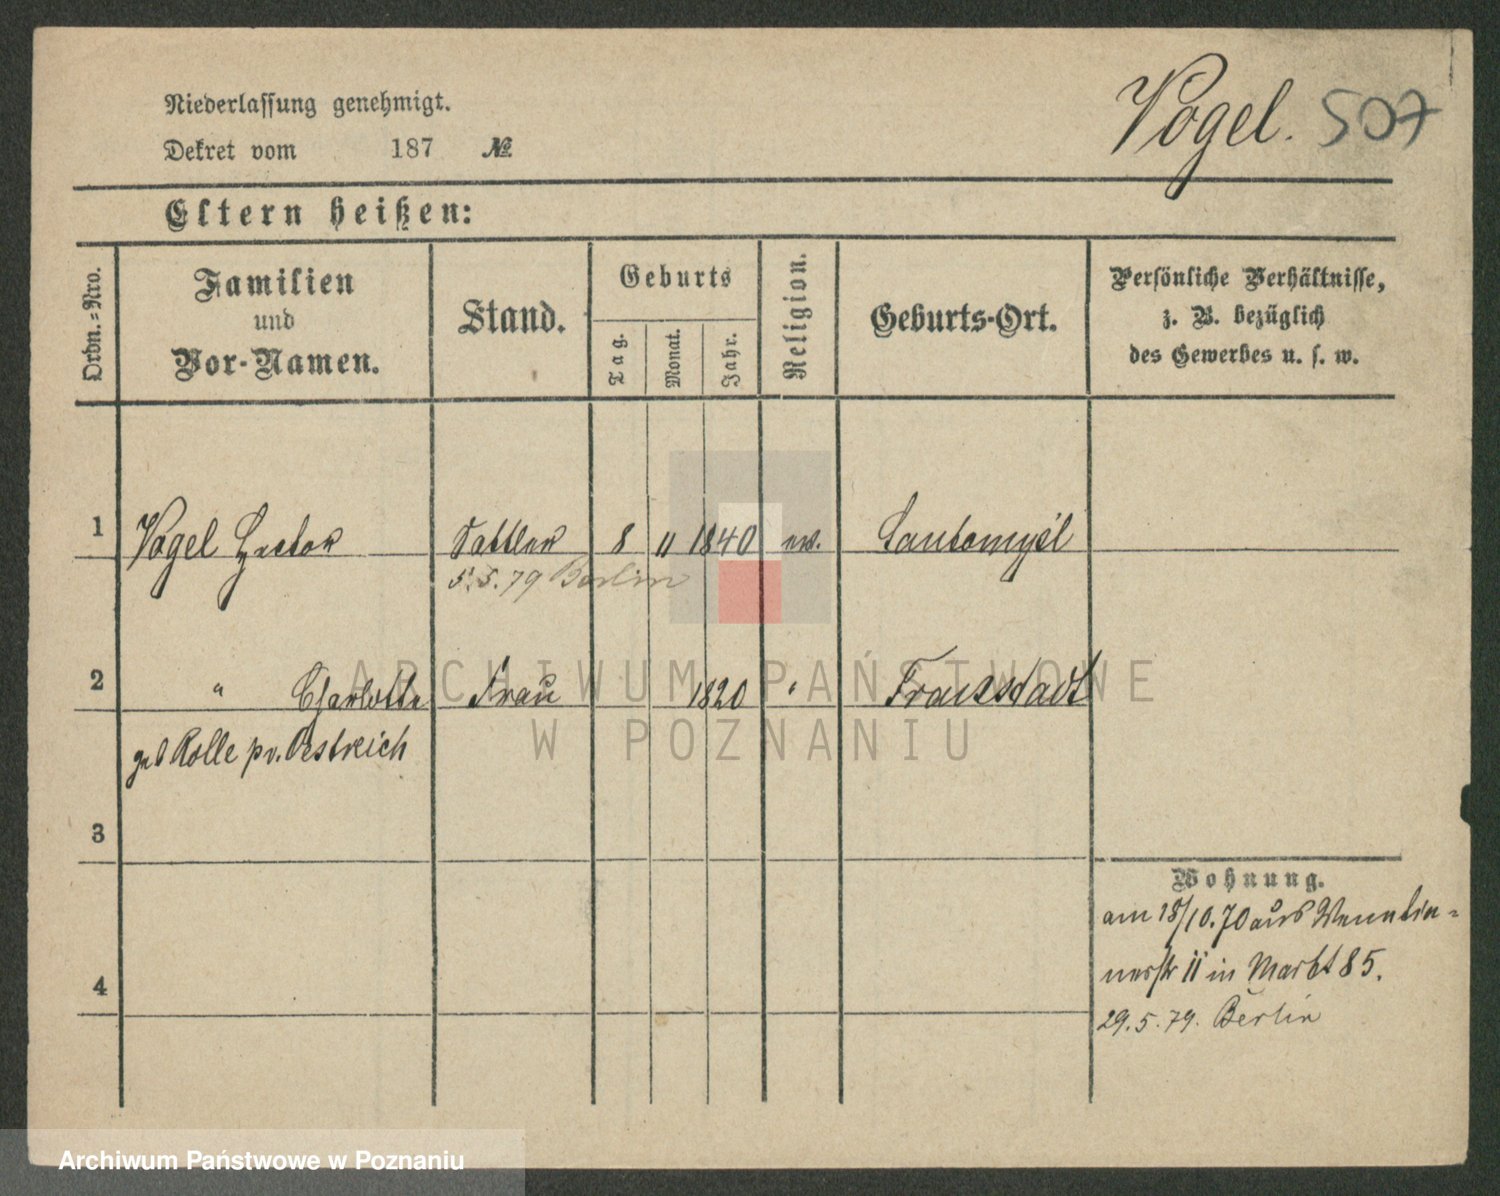 Niederlassung genehmigt.
Vogel. 507
Dekret vom 187 №
Eltern heißen:
Ordn.-Nro.
Familien
und
Vor-Namen.
Stand.
Geburts
Tag.
Monat.
Jahr.
Religion.
Geburts-Ort.
Persönliche Verhältnisse,
z. B. bezüglich
des Gewerbes u. s. w.
1 Vogel Hector Sattler 8 11 1840 ev. Santomyśl
5.5.79 Berlin
2 " Charlotte Frau 1820 " Fraustadt
geb Rolle pr. Oestreich
3
4
Wohnung.
am 18/10.70 aus
in Markt 85.
29.5.79. Berlin
ARCHIWUM PAŃSTWOWE
W POZNANIU
Archiwum Państwowe w Poznaniu